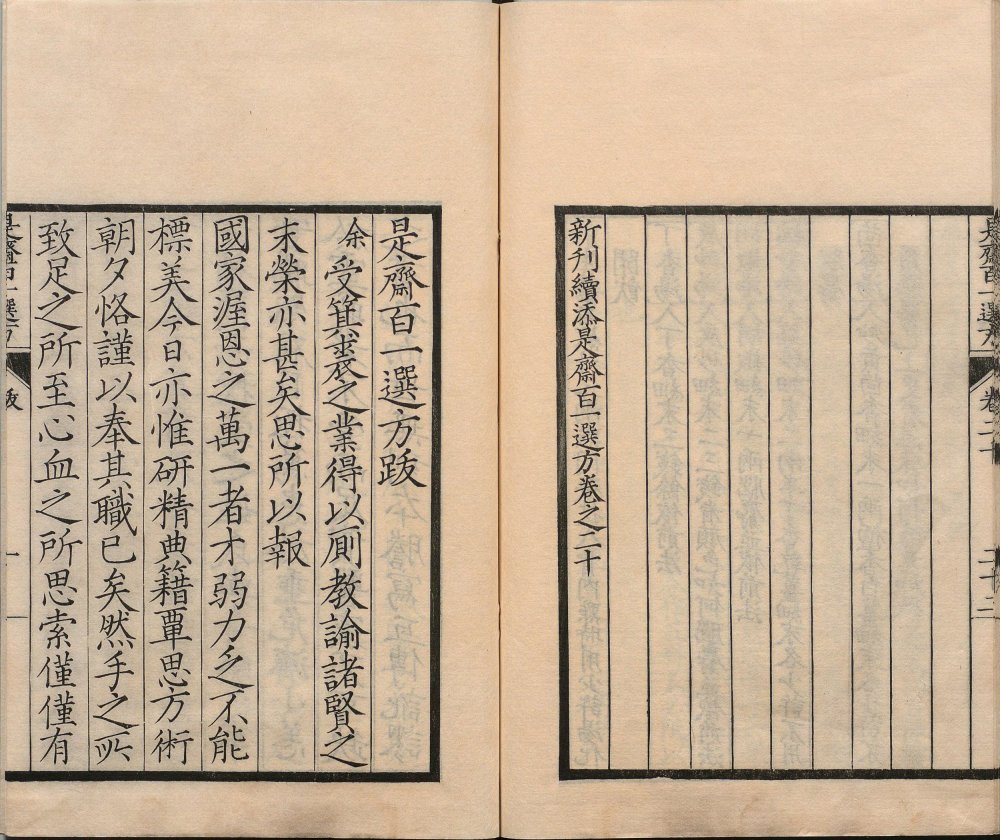 是齋百一選方
卷二十
二十三
新刊續添是齋百一選方卷之二十
是齋百一選方跋
余受箕裘之業得以厠教諭諸賢之
末榮亦甚矣思所以報
國家渥恩之萬一者才弱力乏不能
標美今日亦惟研精典籍覃思方術
朝夕恪謹以奉其職已矣然手之所
致足之所至心血之所思索僅僅有
是齋百一選方
跋
一